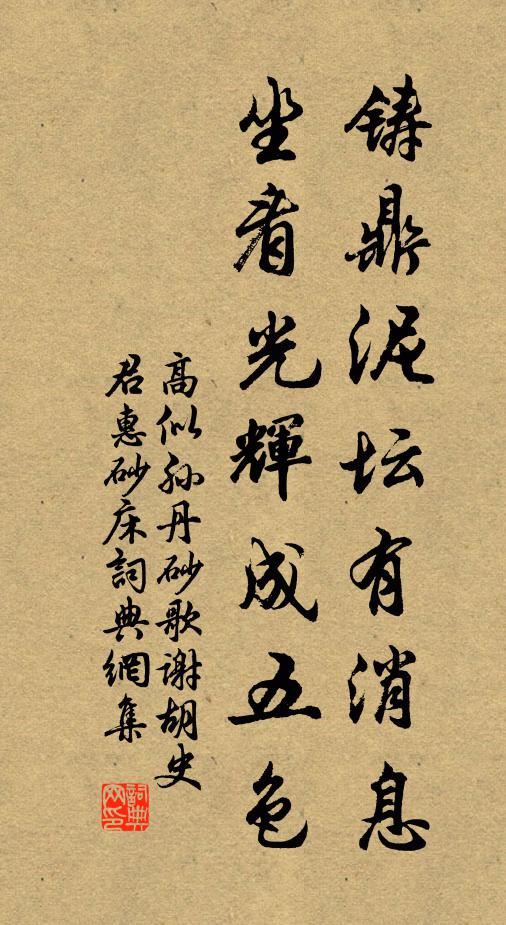 铸鼎泥坛有消息
坐看光輝成五色
高似孙丹砂歌谢胡史
君惠砂床詞典網集
詞典网印